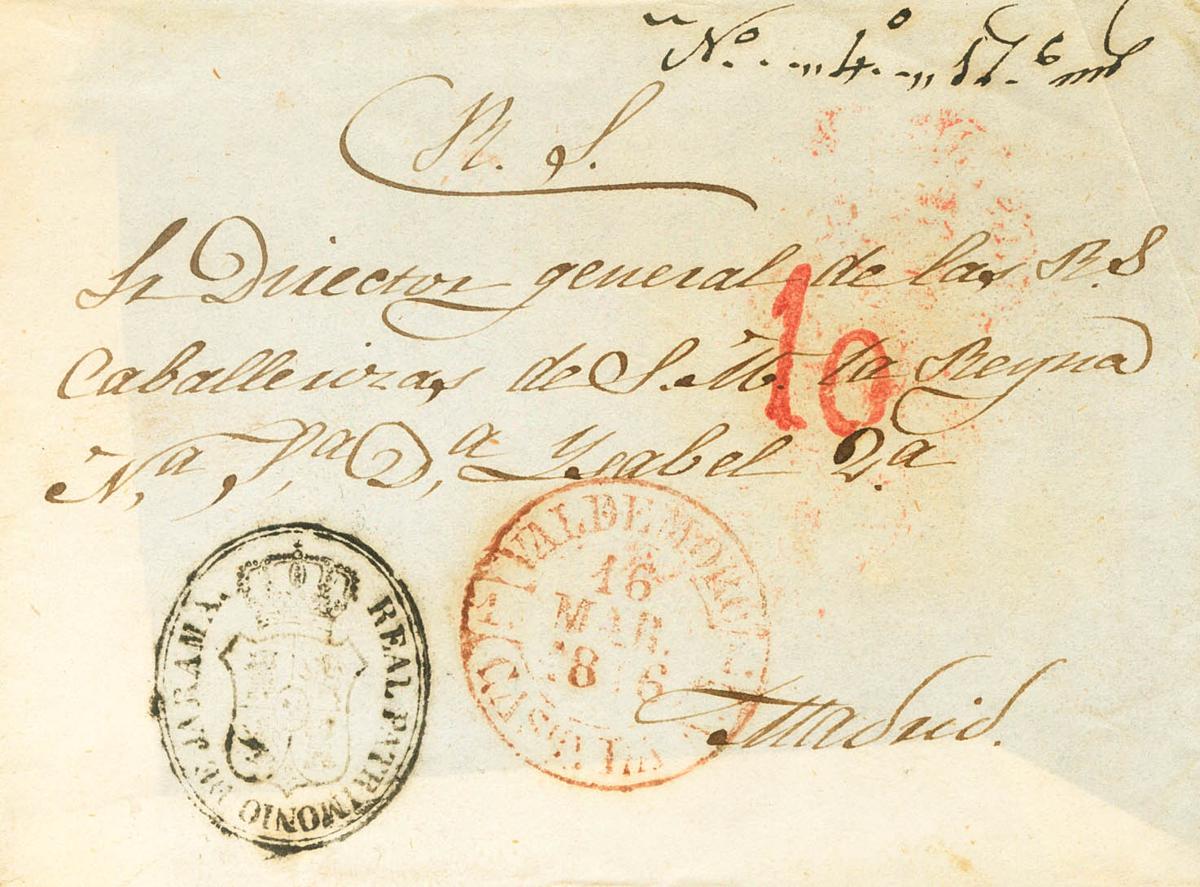 Nº 4º
R. S.
Sr Director general de las R.S
Caballerizas de S. M. la Reyna
N,ª S,ª D,ª Ysabel 2.ª
10
VALDEMORO
16
MAR.
REAL PATRIMONIO DE JARAMA.
Madrid.